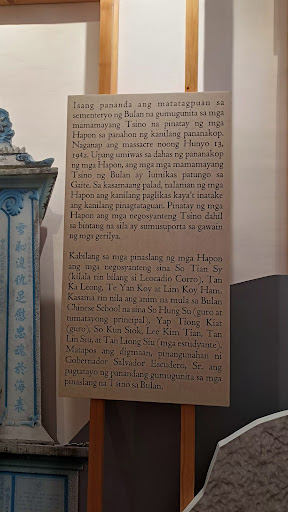 Isang pananda ang matatagpuan sa
sementeryo ng Bulan na gumugunita sa mga
mamamayang Tsino na pinatay ng mga
Hapon sa panahon ng kanilang pananakop.
Naganap ang massacre noong Hunyo 13,
1942. Upang umiwas sa dahas ng pananakop
ng mga Hapon, ang mga mga mamamayang
Tsino ng Bulan ay lumikas patungo sa
Gaite. Sa kasamaang palad, nalaman ng mga
Hapon ang kanilang paglikas kaya't inatake
ang kanilang pinagtataguan. Pinatay ng mga
Hapon ang mga negosyanteng Tsino dahil
sa bintang na sila ay sumusuporta sa gawain
ng mga gerilya.
Kabilang sa mga pinaslang ng mga Hapon
ang mga negosyanteng sina So Tian Sy
(kilala rin bilang si Leocadio Corro), Tan
Ka Leong, Te Yan Koy at Lim Koy Ham.
Kasama rin nila ang anim na mula sa Bulan
Chinese School na sina So Hung Su (guro at
tumatayong principal), Yap Tiong Kiat
(guro), So Kun Siok, Lee Kim Tian, Tan
Lin Siu, at Tan Liong Siu (mga estudyante).
Matapos ang digmaan, pinangunahan ni
Gobernador Salvador Escudero, Sr. ang
pagtatayo ng panandang gumugunita sa mga
pinaslang na Tsino sa Bulan.